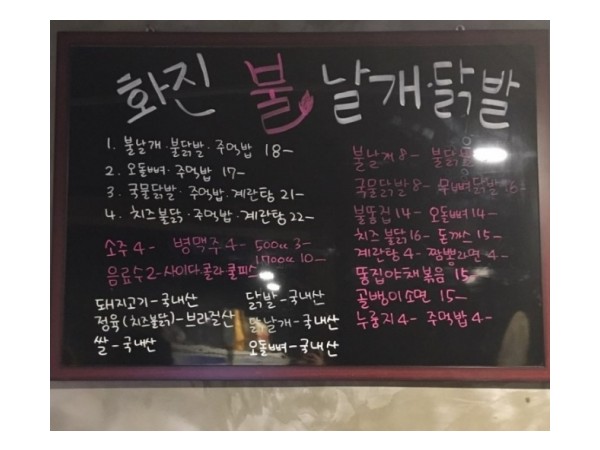 화진 불 날개·닭발
1. 불날개·불닭발·주먹밥 18-
2. 오돌뼈·주먹밥 17-
3. 국물닭발·주먹밥·계란탕 21-
4. 치즈불닭·주먹밥·계란탕 22-
소주 4- 병맥주 4- 500cc 3-
1700cc 10-
음료수 2 - 사이다 콜라 쿨피스
돼지고기 - 국내산 닭발 - 국내산
정육(치즈불닭) - 브라질산 닭날개 - 국내산
쌀 - 국내산 오돌뼈 - 국내산
불날개 8- 불닭발
국물닭발 8- 무뼈닭발
불똥집 14- 오돌뼈 14-
치즈불닭 16- 돈까스 15-
계란탕 4- 짬뽕라면 4-
똥집야채볶음 15-
골뱅이소면 15-
누룽지 4- 주먹밥 4-